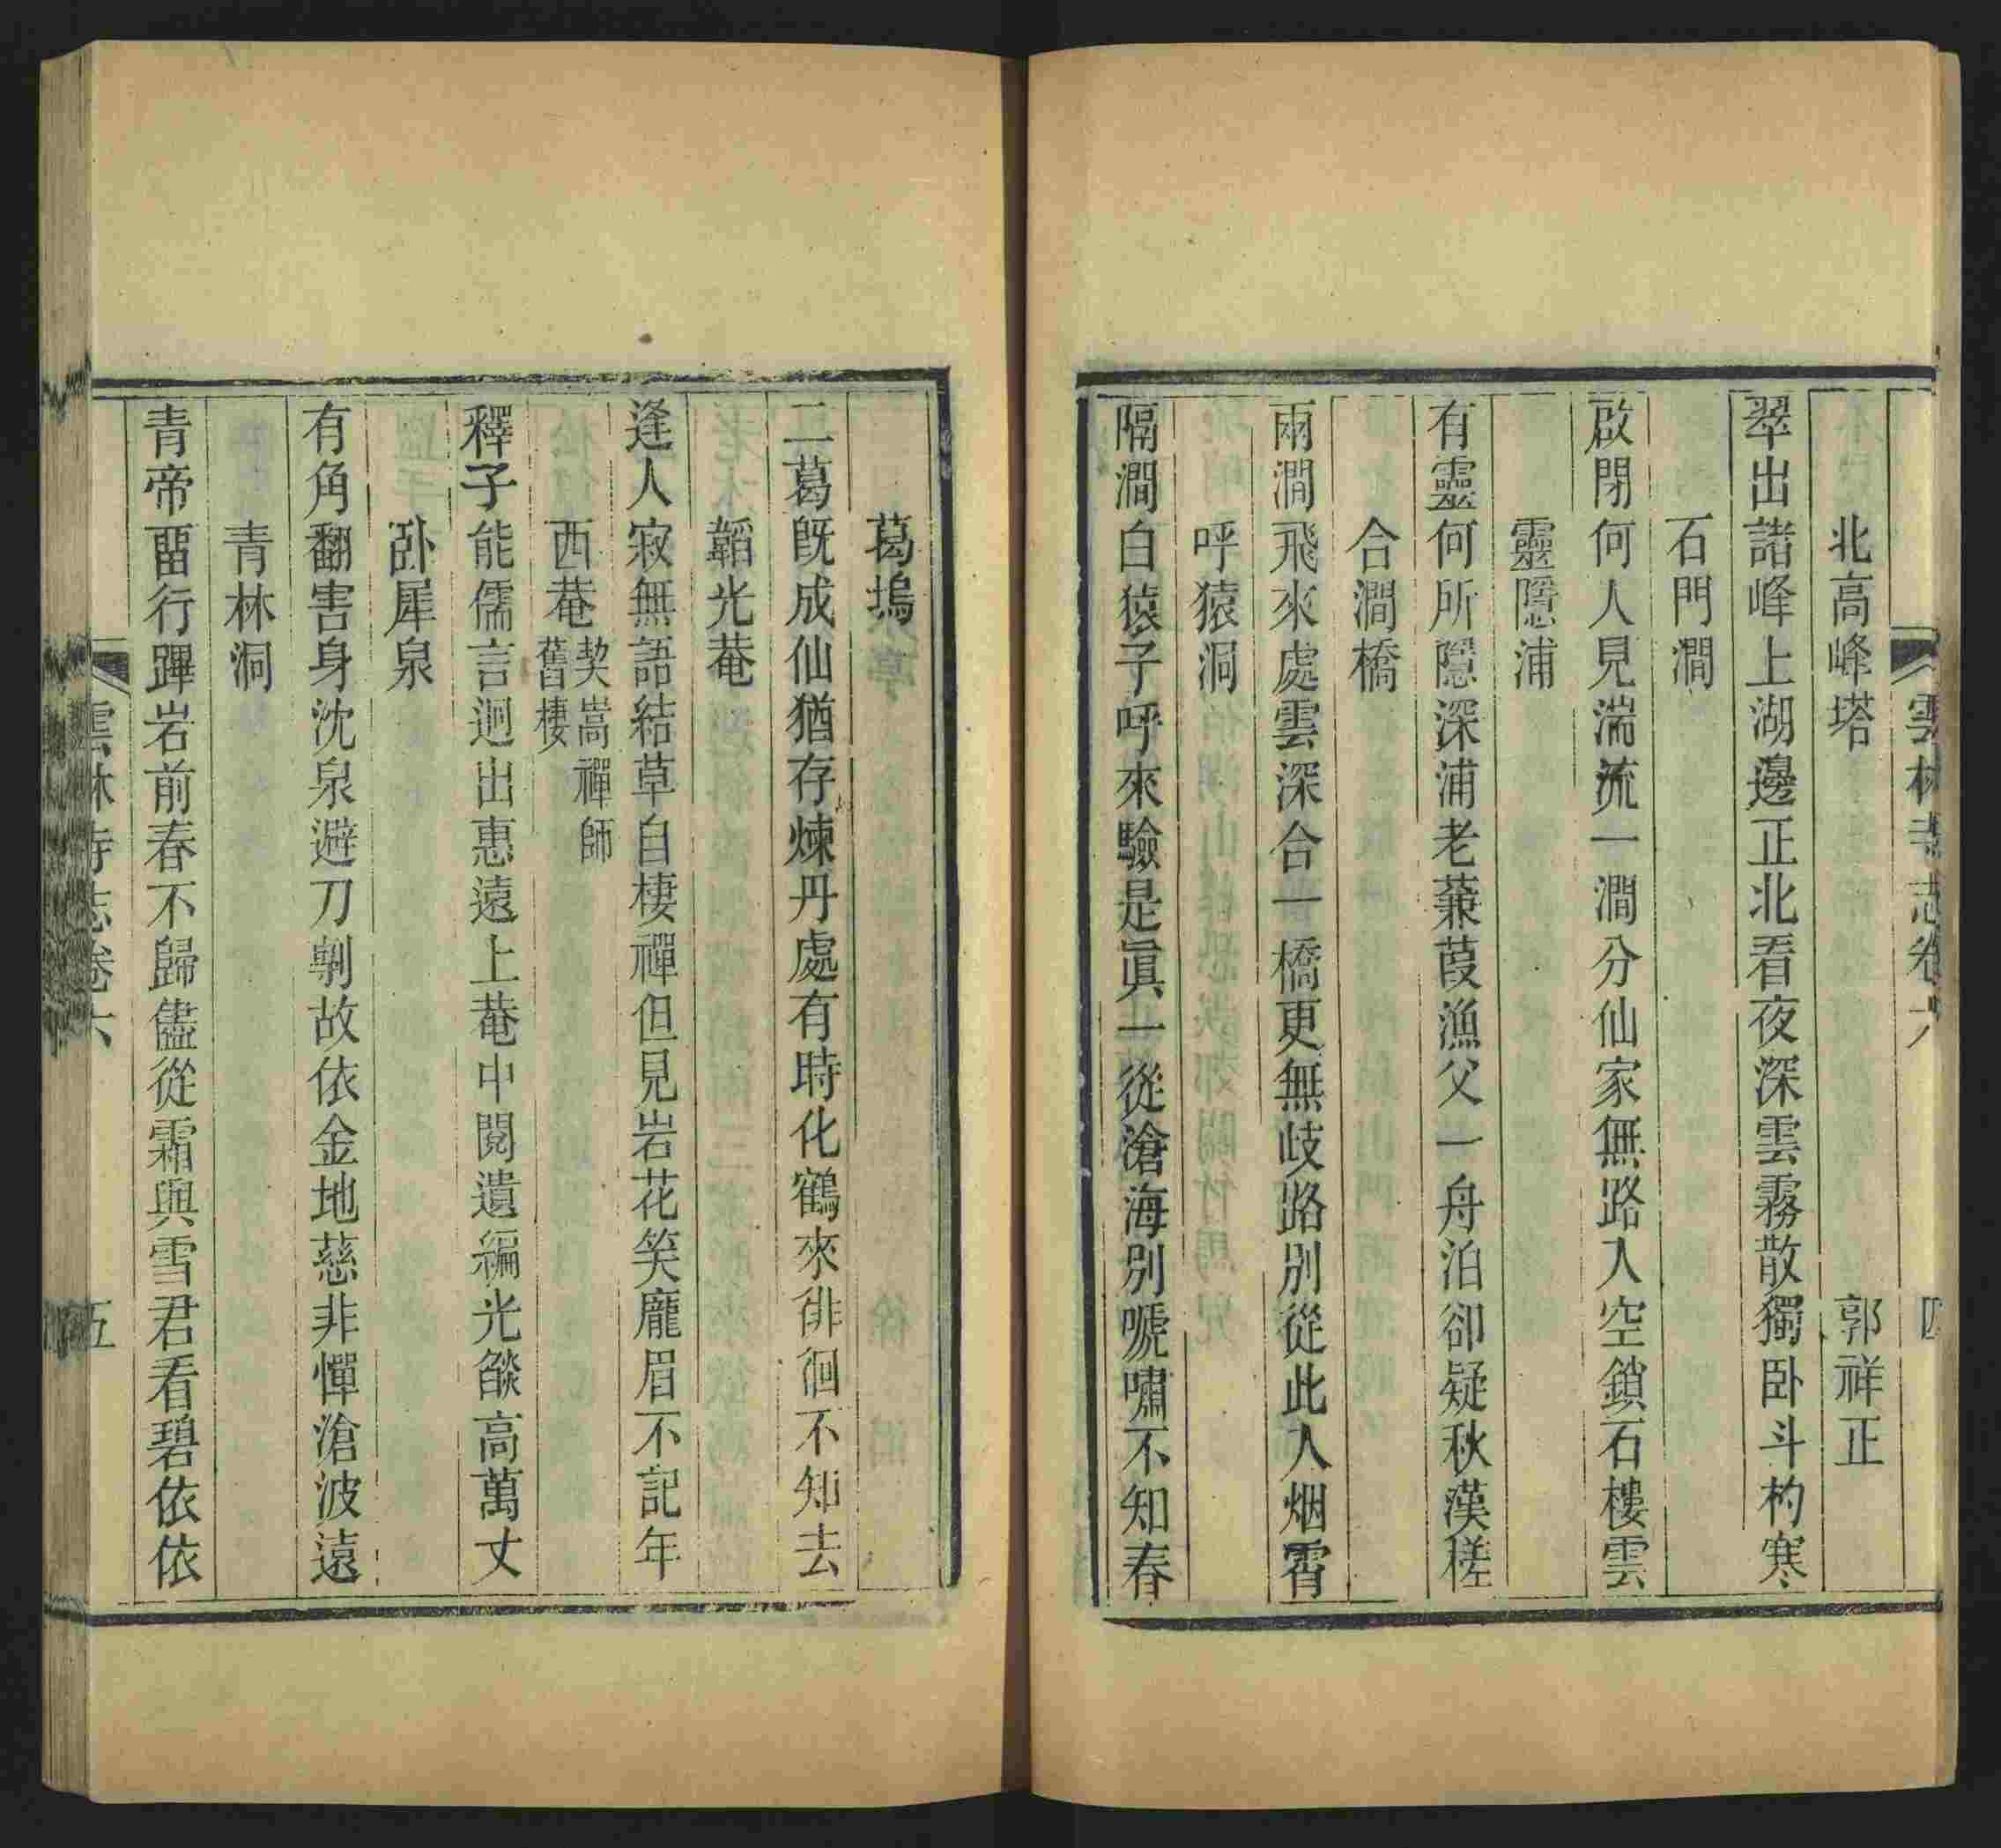 雲林寺志卷六 四
北高峰塔 郭祥正
翠出諸峰上湖邊正北看夜深雲霧散獨卧斗杓寒
石門澗
啟閉何人見湍流一澗分仙家無路入空鎖石樓雲
靈隱浦
有靈何所隱深浦老蒹葭漁父一舟泊卻疑秋漢槎
合澗橋
兩澗飛來處雲深合一橋更無歧路別從此入烟霄
呼猿洞
隔澗白猿子呼來驗是眞一從滄海別嗁嘯不知春
葛塢
二葛既成仙猶存煉丹處有時化鶴來徘徊不知去
韜光菴
逢人寂無語結草自棲禪但見岩花笑龐眉不記年
西菴 契嵩禪師舊棲
釋子能儒言迥出惠遠上菴中閱遺編光燄高萬丈
卧犀泉
有角翻害身沈泉避刀剸故依金地慈非憚滄波遠
青林洞
青帝畱行蹕岩前春不歸儘從霜與雪君看碧依依
雲林寺志卷六 五